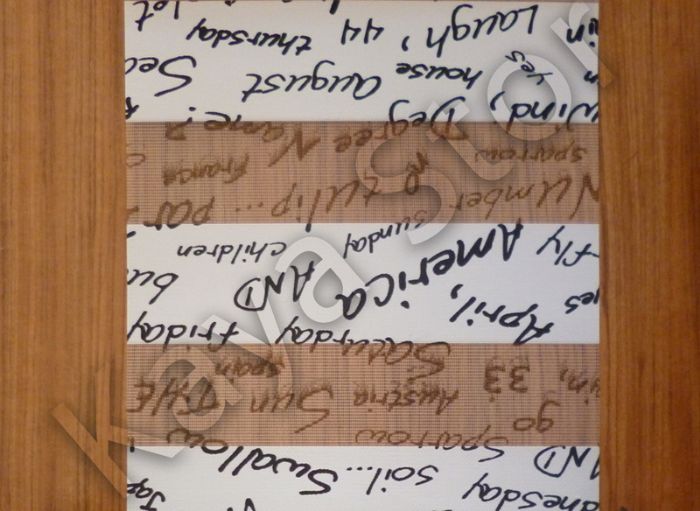 soil... Swallow
AND Sparrow
go Austria Sun THE
33 spain
Saturday friday
April, America AND
fly sunday children
Number tulip...
sparrow France
Degree Name?
Wind, house August
yes
Laugh, 44 thursday
Kaya Stor